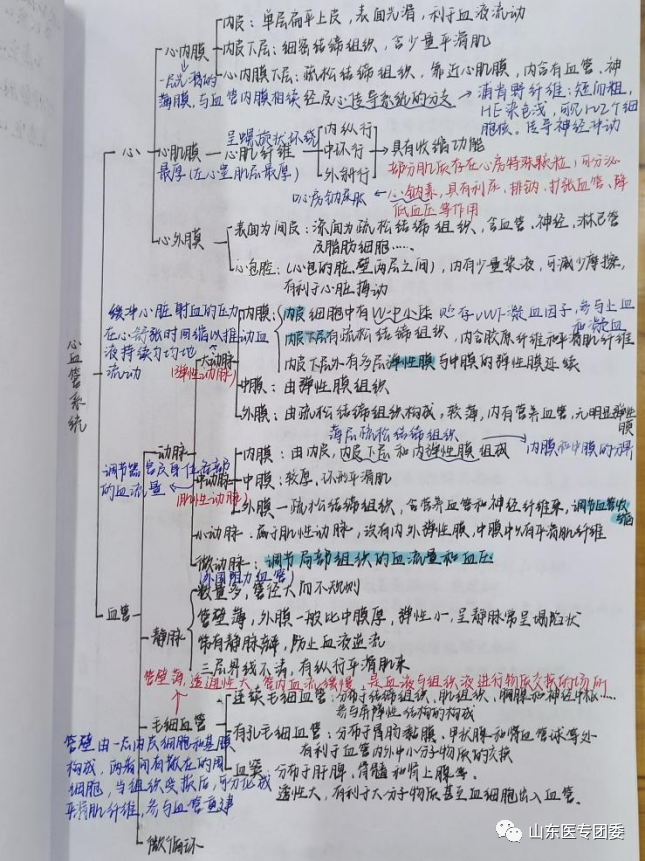 心血管系统
心
心内膜
内皮：单层扁平上皮，表面光滑，利于血液流动
内皮下层：细密结缔组织，含少量平滑肌
心内膜下层：疏松结缔组织，靠近心肌膜，内含有血管、神
经及心传导系统的分支
一层光滑的
薄膜，与血管内膜相续
浦肯野纤维：短而粗，
HE染色浅，可见1~2个细
胞核。传导神经冲动
心肌膜
最厚(左心室肌层最厚)
呈螺旋状环绕
心肌纤维
内纵行
中环行
外斜行
具有收缩功能
部分肌质存在心房特殊颗粒，可分泌
心钠素，具有利尿、排钠、扩张血管、降
低血压等作用
心房钠尿肽
心外膜
表面为间皮：深面为疏松结缔组织，含血管、神经、淋巴管
及脂肪细胞……
心包腔：(心包的脏、壁两层之间)，内有少量浆液，可减少摩擦，
有利于心脏搏动
血管
动脉
缓冲心脏射血的压力
在心舒张时间缩以推动血
液持续均匀地
流动
大动脉
(弹性动脉)
内膜：
内皮细胞中有W-P小体
贮存vWF凝血因子，参与止血
和凝血
内皮下层有疏松结缔组织，内含胶原纤维和平滑肌纤维
内皮下层外有多层弹性膜与中膜的弹性膜延续
中膜：由弹性膜组织
外膜：由疏松结缔组织构成，较薄，内有营养血管，无明显弹性
膜
薄层疏松结缔组织
调节器官及身体各部
的血流量
中动脉
(肌性动脉)
内膜：由内皮，内皮下层和内弹性膜组成
内膜和中膜的分界
中膜：较厚，环形平滑肌
外膜—疏松结缔组织，含营养血管和神经纤维束，调节血管收
缩
小动脉：属于肌性动脉，没有内外弹性膜，中膜中有平滑肌纤维
微动脉：调节局部组织的血流量和血压
(外周阻力血管)
静脉
数量多，管径大而不规则
管壁薄，外膜一般比中膜厚，弹性小，呈静脉常呈塌陷状
常有静脉瓣，防止血液逆流
三层界线不清，有纵行平滑肌束
管壁薄，透通性大，管内血流缓慢，是血液与组织液进行物质交换的场所
毛细血管
管壁由一层内皮细胞和基膜
构成，两者间有散在的周
细胞，当组织受损后，可分化成
平滑肌纤维，参与血管重建
连续毛细血管：分布于结缔组织、肌组织、胸腺和神经中枢……
参与屏障性结构的构成
有孔毛细血管：分布于胃肠黏膜、甲状腺和肾血管球等处
有利于血管内外中小分子物质的交换
血窦：分布于肝脾，骨髓和肾上腺等。
透性大，有利于大分子物质甚至血细胞出入血管.
微循环
山东医专团委